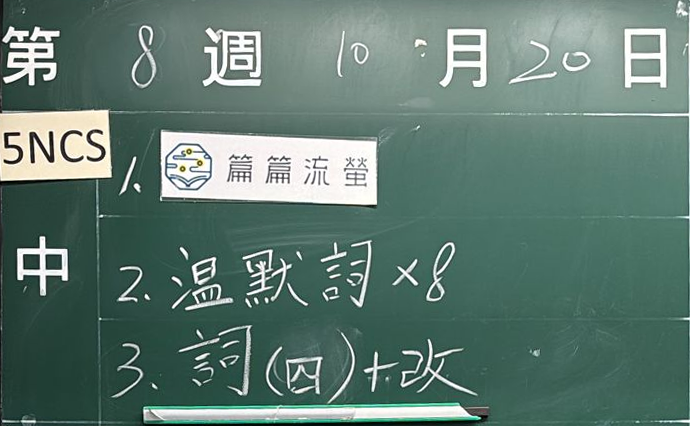 第 8 週 10 月 20 日
5NCS
1. 篇篇流螢
中
2. 温默詞×8
3. 詞(四)+改